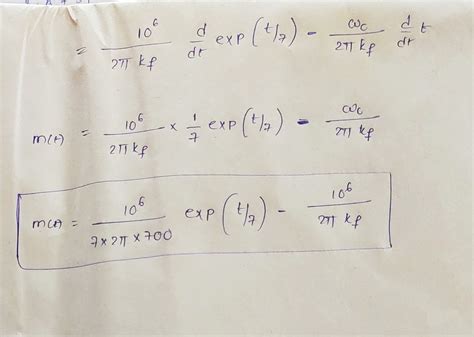 = 10⁶ / 2π k_f d/dt exp (t/7) - ω_c / 2π k_f d/dt t
m(t) = 10⁶ / 2π k_f × 1/7 exp (t/7) - ω_c / 2π k_f
m(t) = 10⁶ / 7×2π×700 exp (t/7) - 10⁶ / 2π k_f